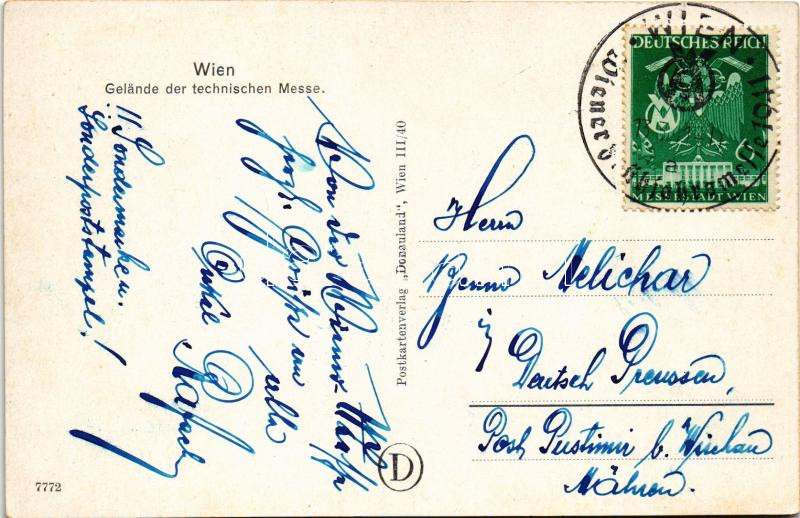 Wien
Gelände der technischen Messe.
!! Sondermarken.
Sonderpoststempel!
Von der Wiener-Messe
herzl. Grüße an
alle
Onkel
Postkartenverlag „Donauland“, Wien III/40
D
7772
WIEN
Wiener Frühjahrsmesse 1941
DEUTSCHES REICH
WM
6
MESSESTADT WIEN
Herrn
Benno Melichar
in
Deutsch Preussen,
Post Pustimir b. Wischau
Mähren.